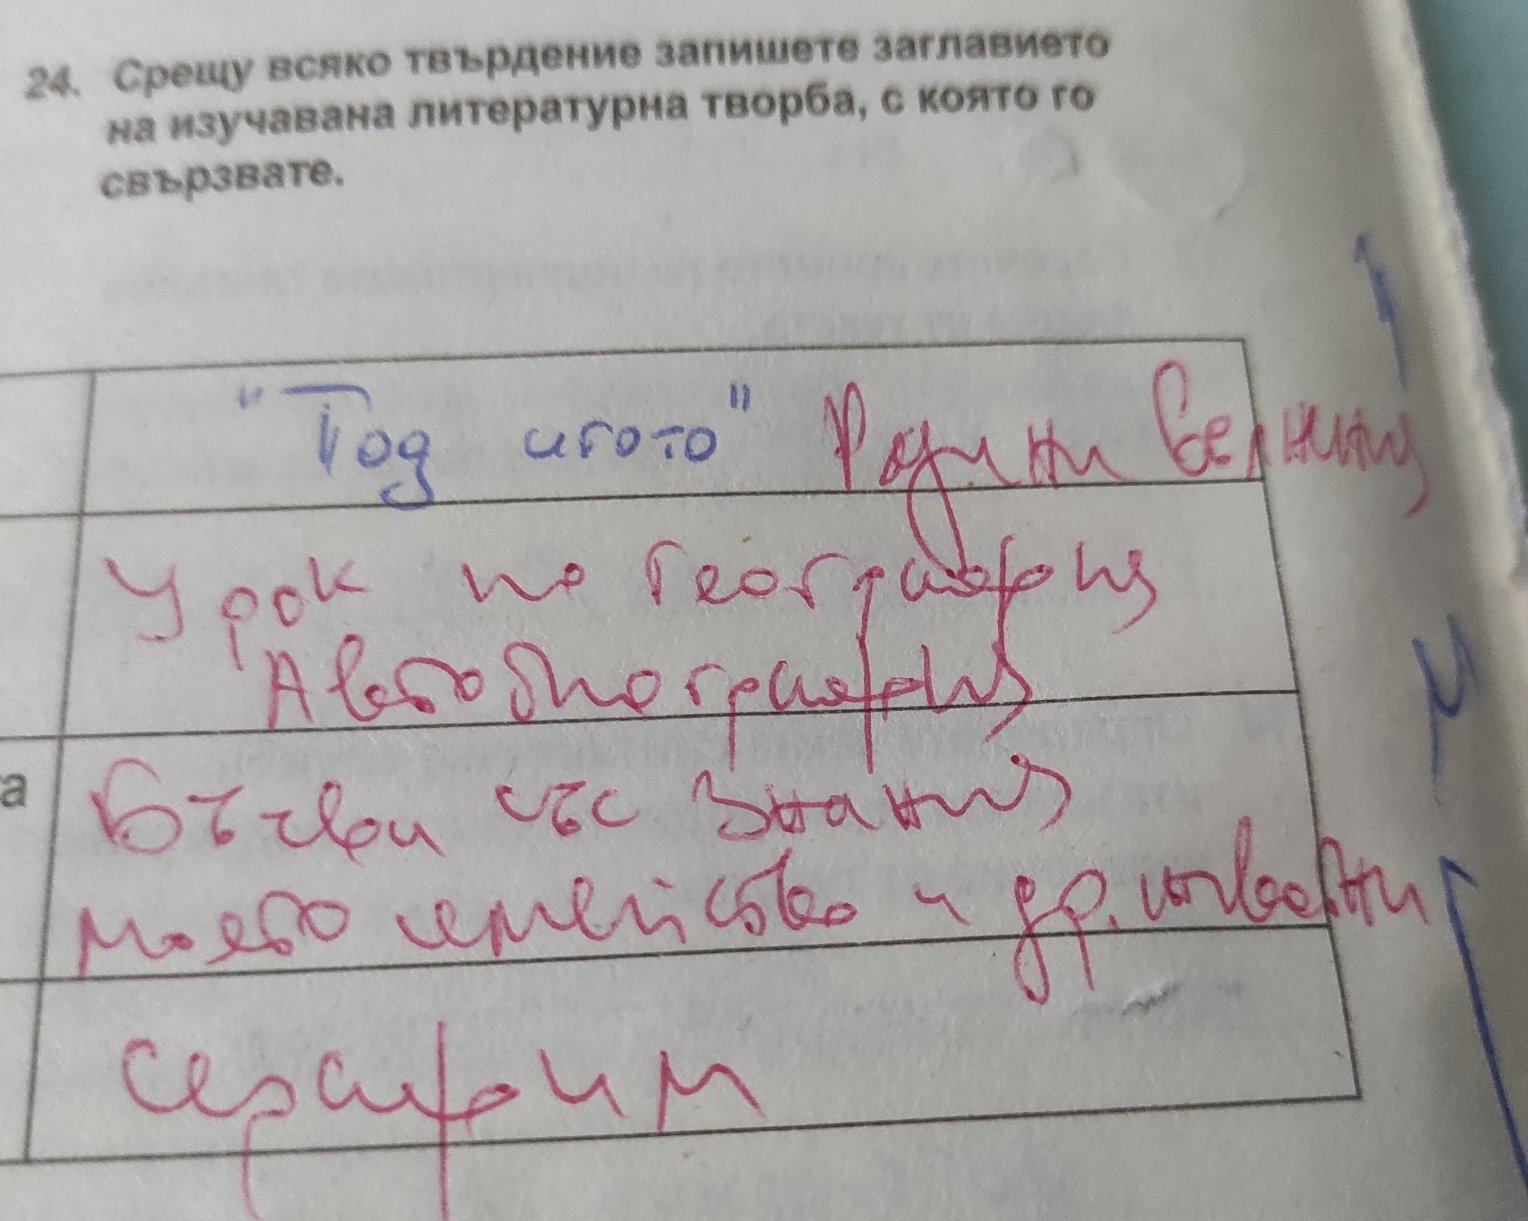 24. Срещу всяко твърдение запишете заглавието
на изучавана литературна творба, с която го
свързвате.
"Под игото" Родини
Урок по География
Автобиография
а
Бъчви със знания
моето семейство и др.
Серафим